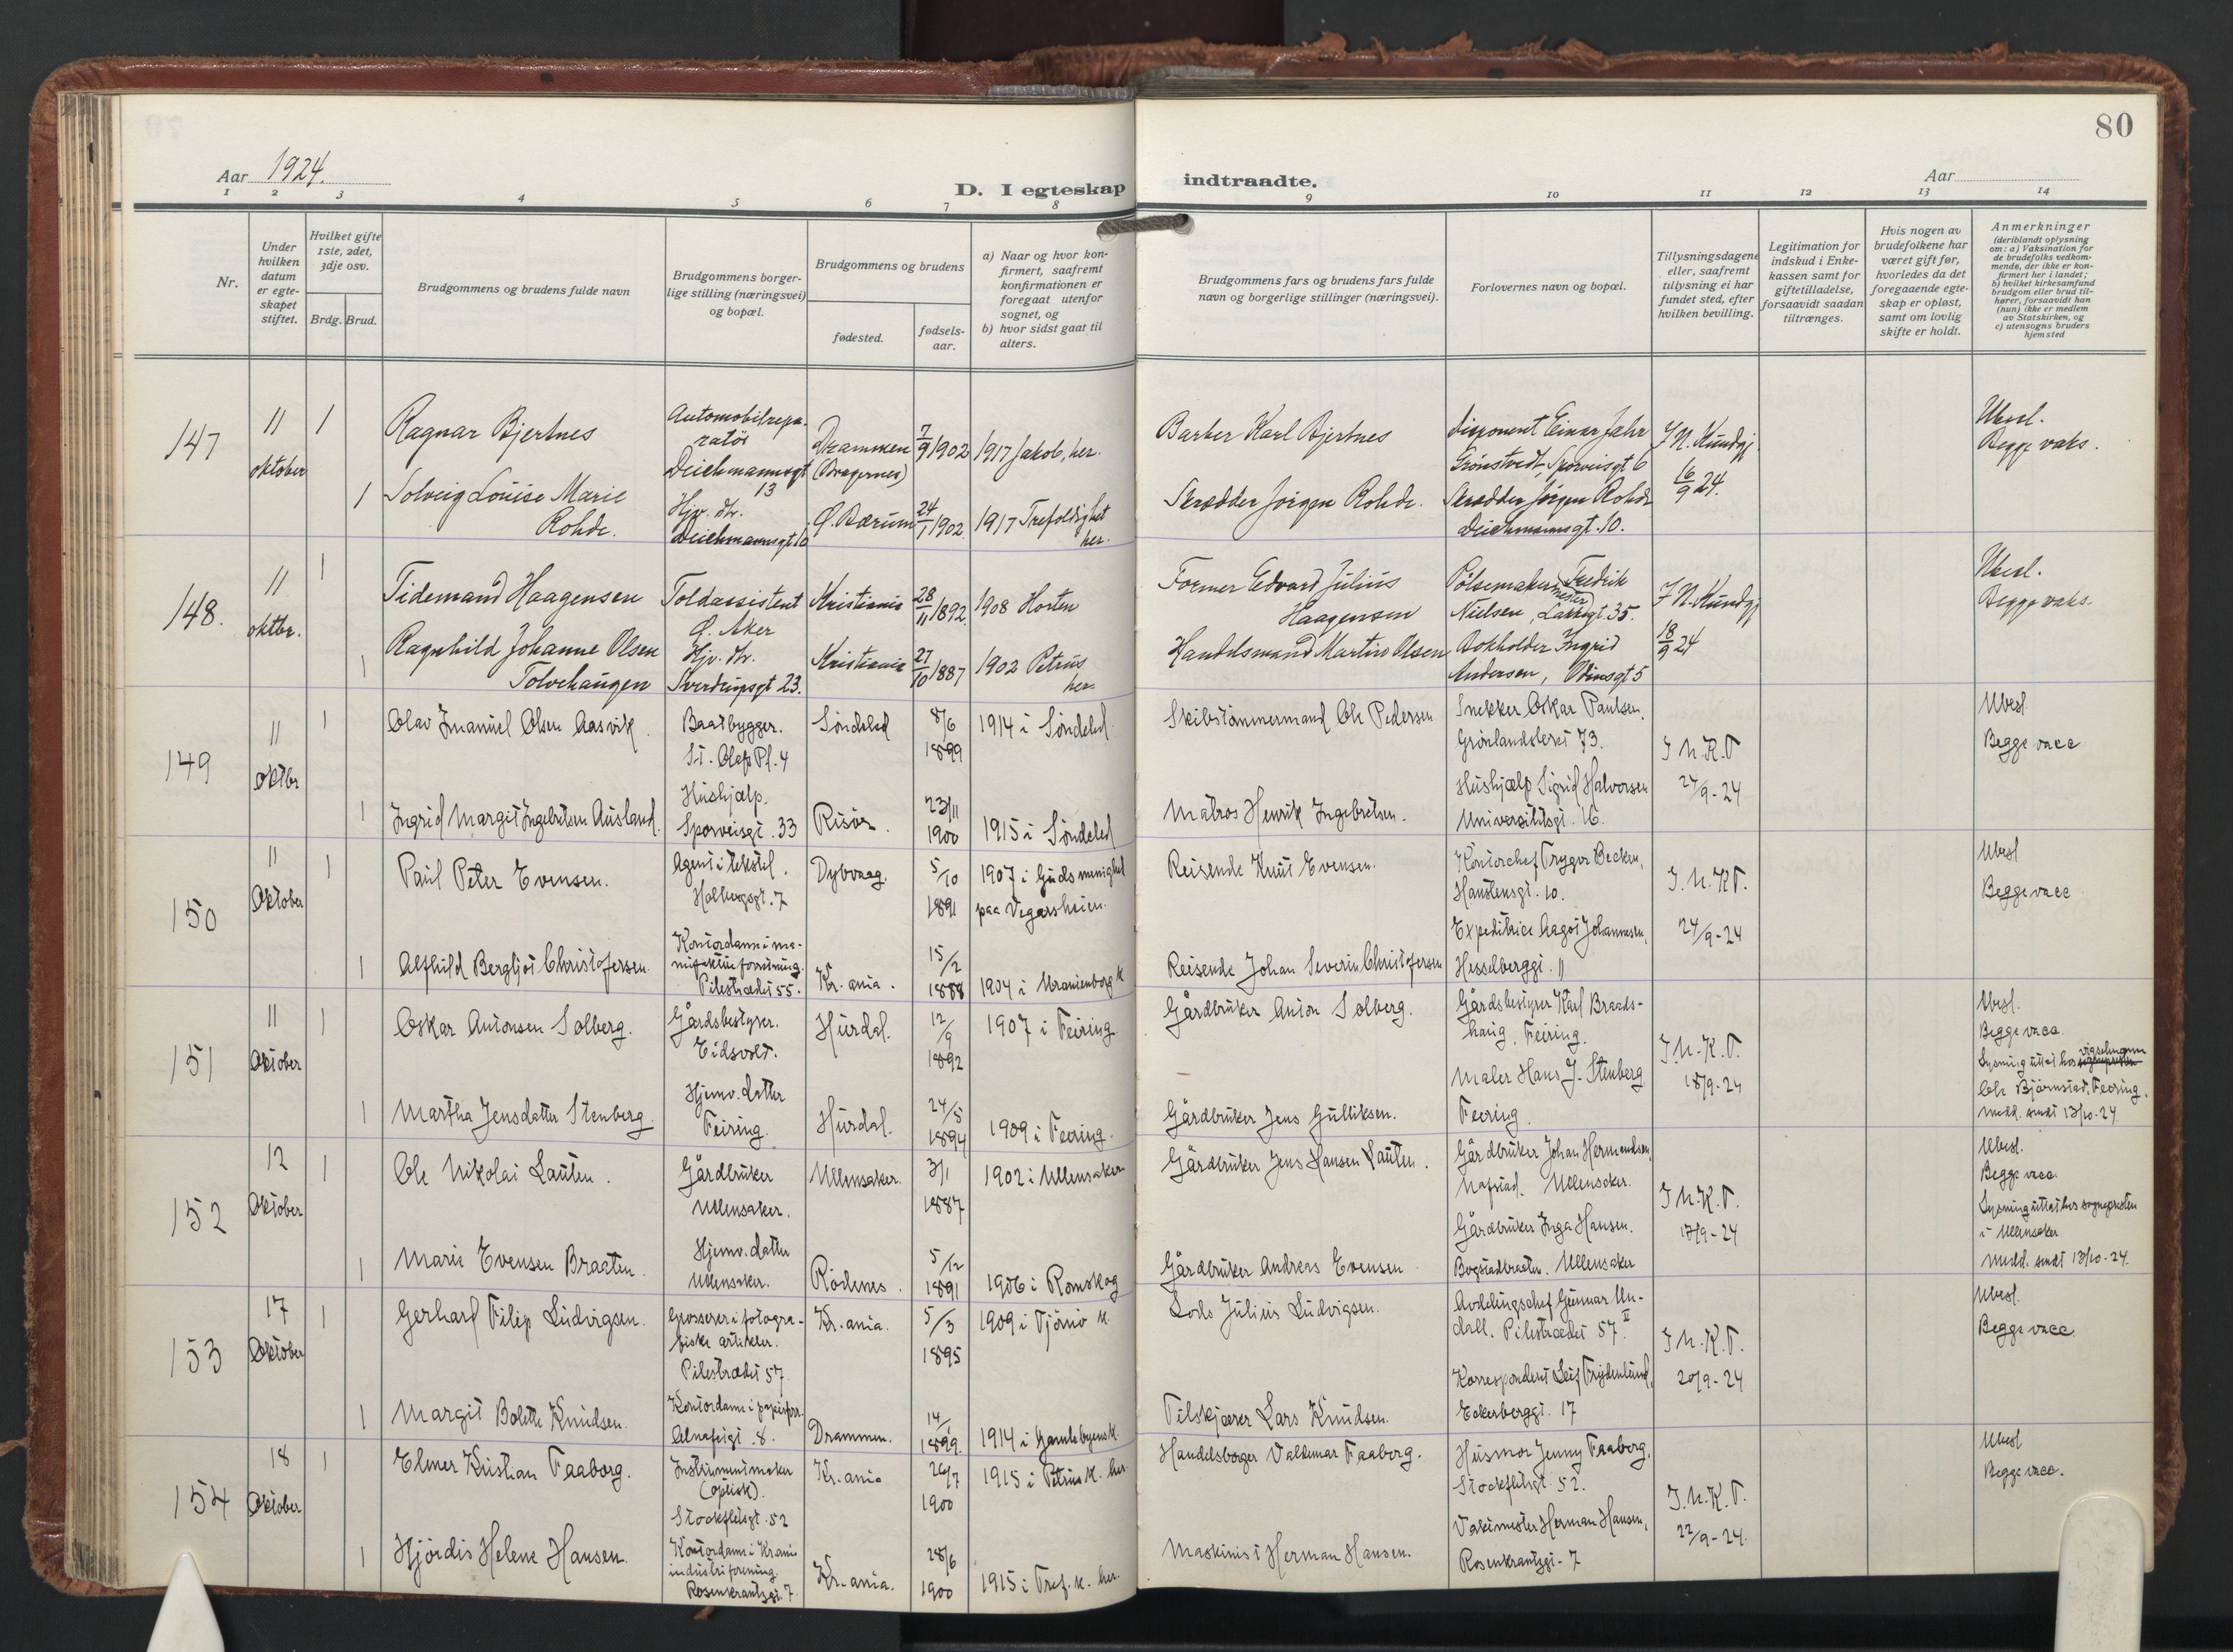 80
Aar 1924.
D. I egteskap
indtraadte.
Aar
1 2 3 4 5 6 7 8 9 10 11 12 13 14
Nr.
Under hvilken datum er egte-skapet stiftet.
Hvilket gifte 1ste, 2det, 3dje osv.
Brdg. Brud.
Brudgommens og brudens fulde navn
Brudgommens borger-lige stilling (næringsvei) og bopæl.
Brudgommens og brudens
fødested.
fødsels-aar.
a) Naar og hvor kon-firmert, saafremt konfirmationen er foregaat utenfor sognet, og
b) hvor sidst gaat til alters.
Brudgommens fars og brudens fars fulde navn og borgerlige stillinger (næringsvei).
Forlovernes navn og bopæl.
Tillysningsdagene eller, saafremt tillysning ei har fundet sted, efter hvilken bevilling.
Legitimation for indskud i Enke-kassen samt for giftetilladelse, forsaavidt saadan tiltrænges.
Hvis nogen av brudefolkene har været gift før, hvorledes da det foregaaende egte-skap er opløst, samt om lovlig skifte er holdt.
Anmerkninger
(deriblandt oplysning om: a) Vaksination for de brudefolks vedkom-mende, der ikke er kon-firmert her i landet; b) hvilket kirkesamfund brudgom eller brud til-hører, forsaavidt han (hun) ikke er medlem av Statskirken, og c) utensogns bruders hjemsted
147
11 oktober
1
Ragnar Bjertnes
Automobilrepa-
ratör
Deichmannsgt 13
Drammen (Bragernes)
7/9 1902
1917 Jakob, her.
Barber Karl Bjertnes
Disponent Einar Jahr
Grönstvedt, Sporveisgt 6
J N. Kundgj.
16/9 24.
Ubesl.
Begge vaks.
1
Solveig Louise Marie
Rohde.
Hjv. dtr.
Deichmannsgt 10
Ö. Bærum
24/1 1902.
1917 Trefoldighet
her.
Skrædder Jörgen Rohde.
Skrædder Jörgen Rohde
Deichmannsgt. 10.
148.
11 oktbr.
1
Tidemand Haagensen
Toldassistent
Ö. Aker
Kristiania
28/11 1892.
1908 Horten
Former Edvard Julius
Haagensen
Pölsemaker mester Fredrik
Nielsen, Lakkegt. 35.
J N. Kundgj
18/9 24
Ubesl.
Begge vaks.
1
Ragnhild Johanne Olsen
Tolvehaugen
Hjv. dtr.
Sverdrupsgt 23.
Kristiania
27/10 1887
1902 Petrus
her.
Handelsmand Martin Olsen
Bokholder Ingrid
Andersen, Odinsgt 5
149
11 oktbr
1
Olav Imanuel Olsen Aasvik.
Baatbygger.
St. Olafs Pl. 4
Söndeled
8/6 1899
1914 i Söndeled.
Skibstömmermand Ole Pedersen
Snekker Oskar Paulsen,
Grönlandsleret 73.
J. N. K. T
24/9-24
Ubesl.
Begge vacc
1
Ingrid Margit Ingebretsen Ausland.
Hushjælp.
Sporveisgt. 33
Risör.
23/11 1900
1915 i Söndeled
Matros Henrik Ingebretsen.
Hushjælp Sigrid Halvorsen
Universitetsgt. 16.
150
11 Oktober
1
Paul Peter Evensen.
Agent i tekstil.
Holbergsgt. 7
Dybvaag.
5/10 1891
1907 i Guds menighet
paa Vegarsheien.
Reisende Knut Evensen.
Kontorchef Trygve Becken,
Hanstensgt. 10.
J. N. K T.
24/9-24
Ubesl
Begge vacc.
1
Alfhild Bergljot Christofersen.
Kontordame i ma-
nufakturforretning.
Pilestrædet 55.
Kr.ania.
15/2 1888
1904 i Uranienborg k
Reisende Johan Severin Christofersen
Expeditrice Aagot Johannesen,
Hesselberggt. 11
151
11 Oktober
1
Oskar Antonsen Solberg.
Gårdsbestyrer.
Eidsvold.
Hurdal.
12/9 1892
1907 i Feiring
Gårdbruker Anton Solberg.
Gårdsbestyrer Karl Braads-
haug, Feiring.
J. N. K. T.
18/9-24
Ubesl.
Begge vacc.
Lysning uttat hos vigselsmann
Ole Björnstad, Feiring.
medd. sendt 13/10-24.
1
Martha Jensdatter Stenberg.
Hjemv. datter
Feiring.
Hurdal.
24/5 1894
1909 i Feiring.
Gårdbruker Jens Gulliksen.
Maler Hans J. Stenberg
Feiring
152
12 Oktober
1
Ole Nikolai Lauten.
Gårdbruker
Ullensaker.
Ullensaker.
3/1 1887
1902 i Ullensaker
Gårdbruker Jens Hansen Lauten.
Gårdbruker Johan Hermandsen,
Nafstad. Ullensaker.
J. N. K. T.
17/9-24
Ubesl.
Begge vacc.
Lysning uttat hos sognepresten
i Ullensaker.
medd. sendt 13/10-24.
1
Marie Evensen Braaten.
Hjemv. datter
Ullensaker.
Rödenes.
5/12 1891
1906 i Romskog
Gårdbruker Andreas Evensen
Gårdbruker Inga Hansen.
Bogstadbraaten. Ullensaker
153
17 Oktober
1
Gerhard Filip Ludvigsen.
Grosserer i fotogra-
fiske artikler.
Pilestrædet 57.
Kr.ania.
5/3 1895
1909 i Tjömö k.
Lods Julius Ludvigsen.
Avdelingschef Gunnar Un-
dall. Pilestrædet 57 II.
J. N. K. T.
20/9-24
Ubesl.
Begge vacc.
1
Margit Bolette Knudsen.
Kontordame i papirforr.
Alnafetgt. 8.
Drammen.
14/1 1899.
1914 i Gamlebyens k.
Tilskjærer Lars Knudsen.
Korrespondent Leif Frydenlund,
Eckersberggt. 17
154
18 Oktober
1
Elmer Kristian Faaborg.
Instrumentmaker
(optisk).
Stockfletsgt. 52
Kr.ania
26/7 1900
1915 i Petrus k. her.
Handelsborger Valdemar Faaborg.
Husmor Jenny Faaborg,
Stockfletsgt. 52.
J. N. K. T.
22/9-24.
Ubesl
Begge vacc.
1
Hjördis Helene Hansen.
Kontordame i Krania
industriforening.
Rosenkrantzgt. 7.
Kr.ania.
28/6 1900
1915 i Tref. k. her.
Maskinist Herman Hansen.
Vaktmester Herman Hansen,
Rosenkrantzgt. 7